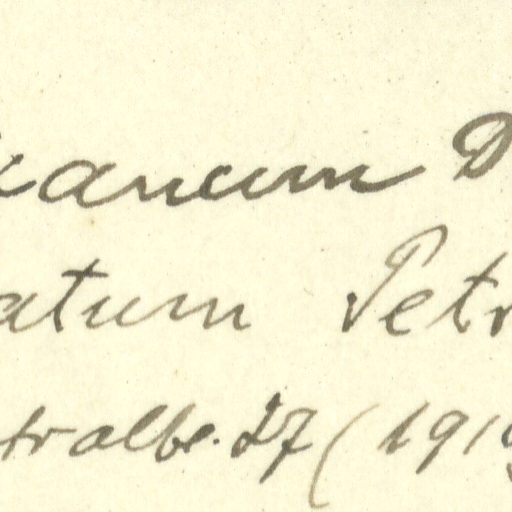 xanum D
atum Petr
tralbl. 27 (191